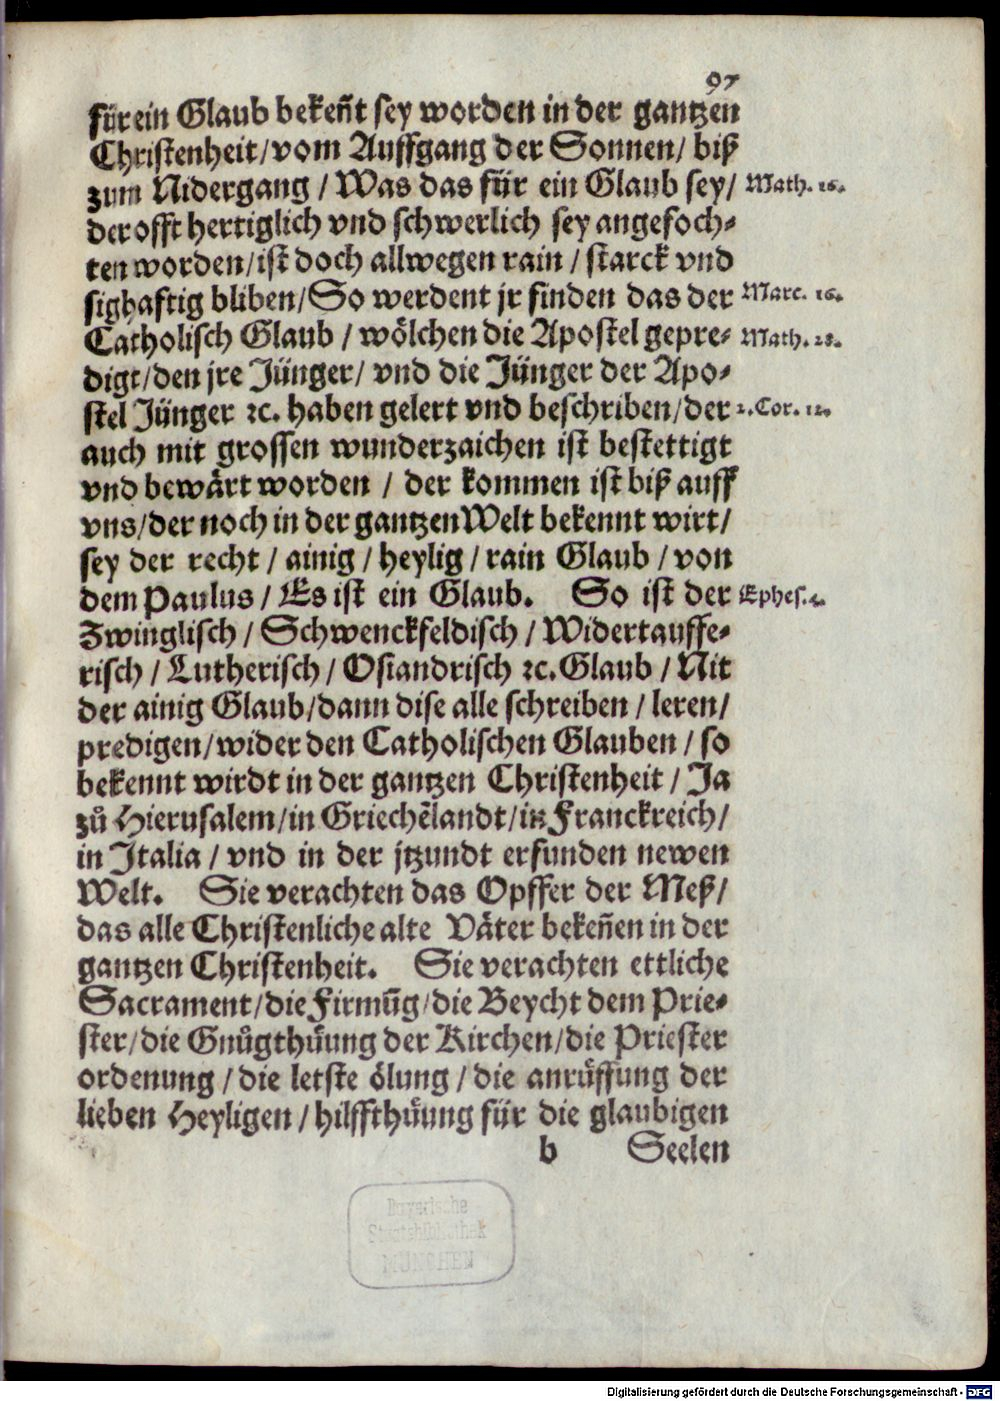 97
für ein Glaub bekeñt sey worden in der gantzen
Christenheit/vom Auffgang der Sonnen/ biß
zum Nidergang / Was das für ein Glaub sey/ Math. 16.
der offt hertiglich vnd schwerlich sey angefoch-
ten worden/ist doch allwegen rain / starck vnd
sighafftig bliben/So werdent jr finden das der Marc. 16.
Catholisch Glaub / wölchen die Apostel gepre- Math. 28.
digt/den jre Jünger/ vnd die Jünger der Apo-
stel Jünger ꝛc. haben gelert vnd beschriben/der 2. Cor. 12.
auch mit grossen wunderzaichen ist bestettigt
vnd bewårt worden / der kommen ist biß auff
vns/der noch in der gantzen Welt bekennt wirt/
sey der recht / ainig / heylig / rain Glaub / von
dem Paulus / Es ist ein Glaub. So ist der Ephes. 4.
Zwinglisch / Schwenckfeldisch / Widertauffe-
risch / Lutherisch / Osiandrisch ꝛc. Glaub / Nit
der ainig Glaub/dann dise alle schreiben / leren/
predigen/wider den Catholischen Glauben / so
bekennt wirdt in der gantzen Christenheit / Ja
zů Hierusalem/in Griechẽlandt/in Franckreich/
in Italia / vnd in der jtzundt erfunden newen
Welt. Sie verachten das Opffer der Meß/
das alle Christenliche alte Väter bekeñen in der
gantzen Christenheit. Sie verachten ettliche
Sacrament/die Firmũg/die Beycht dem Prie-
ster/die Gnůgthüung der Kirchen/die Priester
ordenung / die letste ölung / die anrüffung der
lieben Heyligen / hilffthüung für die glaubigen
b Seelen
Bayerische
Staatsbibliothek
MÜNCHEN
Digitalisierung gefördert durch die Deutsche Forschungsgemeinschaft - DFG